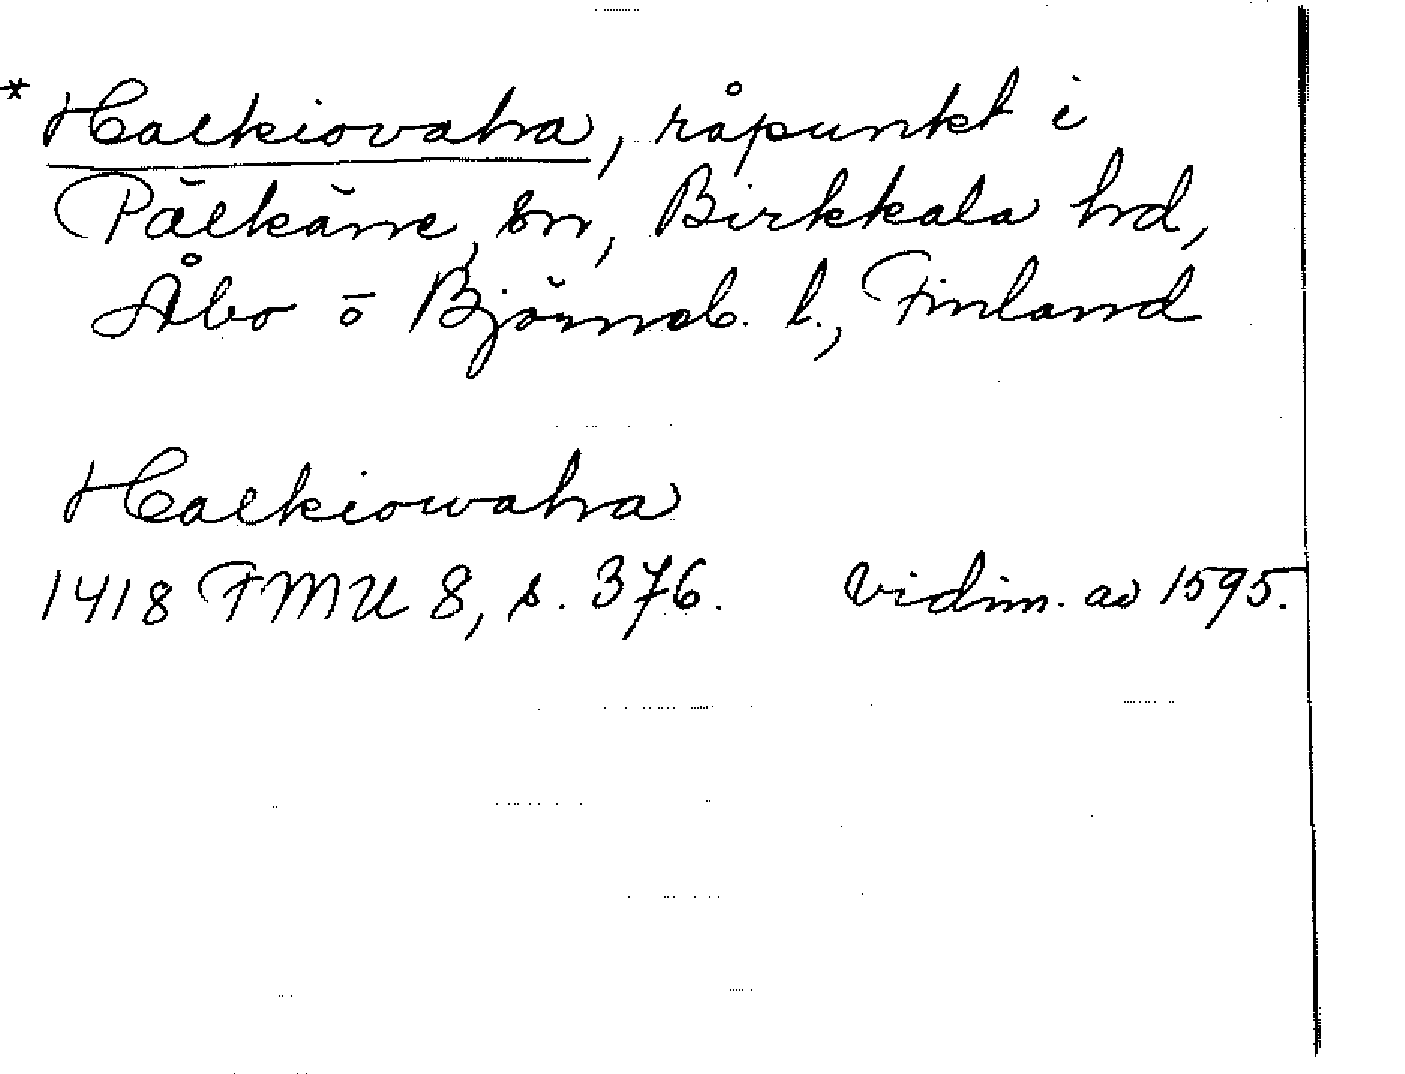 * Halkiovaha, råpunkt i
Pälkäne, sn, Birkkala hd,
Åbo o Björneb. l., Finland
Halkiowaha
1418 FMU 8, s. 376. Vidim. av 1595.